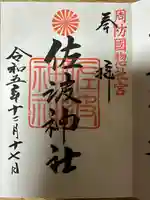 周防國惣社宮
奉拝
佐波神社
令和五年十二月十七日